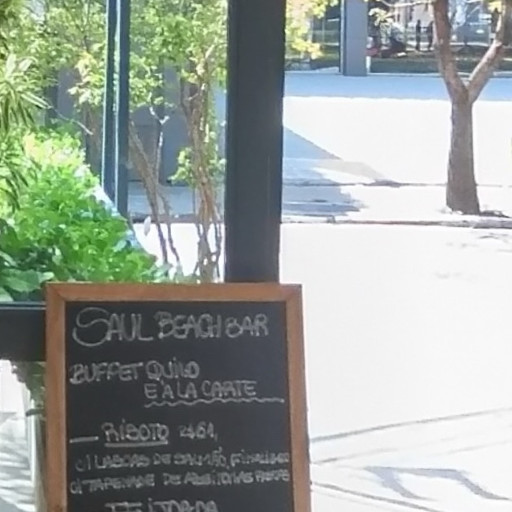 SAUL BEACH BAR
BUFFET QUILO
E A LA CARTE
RISOTO
C/ LASCAS DE SALMÃO, FINALIZADO
C/ TAPENADE DE AZEITONAS PRETAS
FEIJOADA